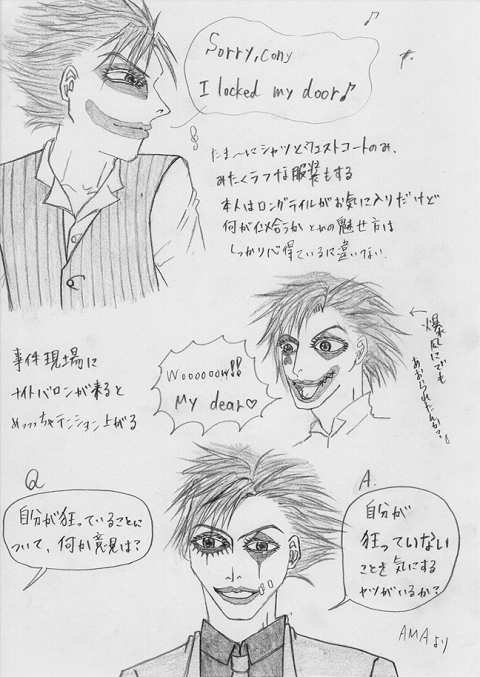 Sorry, Cony
I locked my door♪
たま〜にシャツとウェストコートのみ、
みたくラフな服装もする
本人はロングテイルがお気に入りだけど
何が似合うかとかの魅せ方は
しっかり心得ているに違いない
←爆風にでも
あおられたんか?
事件現場に
ナイトバロンが来ると
めっっっちゃテンション上がる
Woooooow!!
My dear♡
Q
自分が狂っていることに
ついて、何か意見は?
A.
自分が
狂っていない
ことを気にする
ヤツがいるか?
AMAより